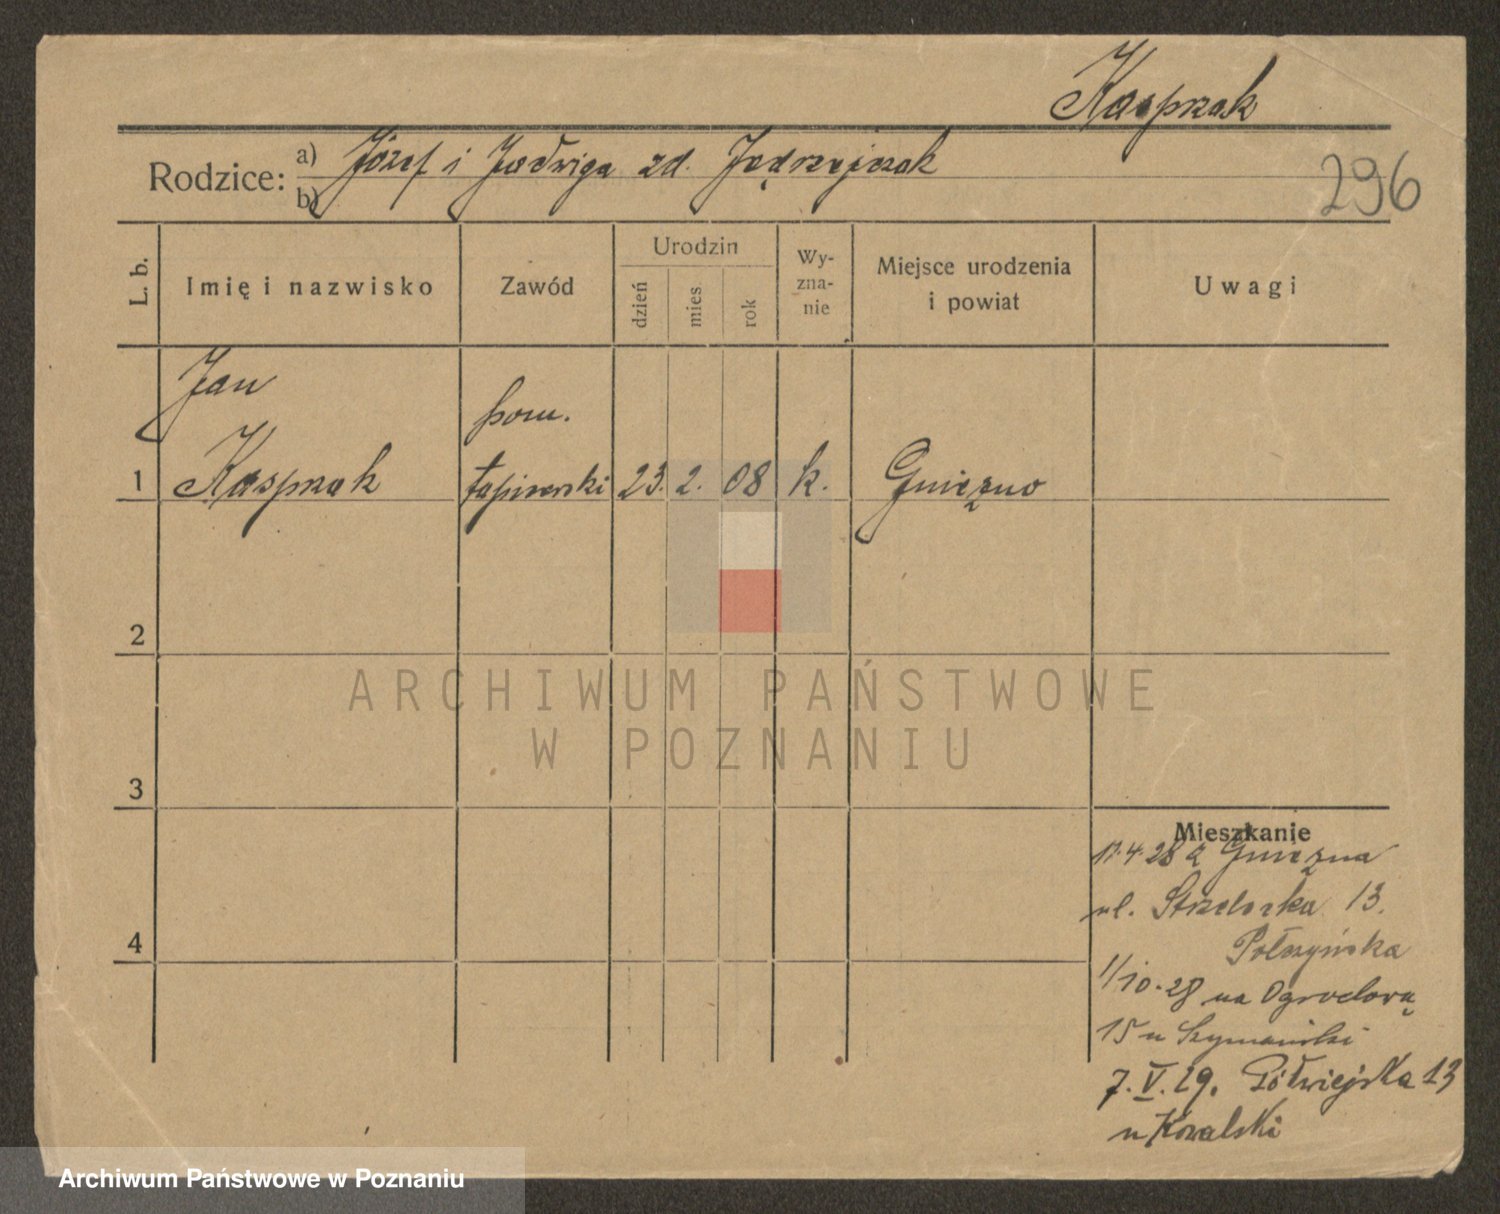 Kasprzak
Rodzice: a) Józef i Jadwiga zd. Jędrzejczak
b)
296
L. b.
Imię i nazwisko
Zawód
Urodzin
dzień
mies.
rok
Wy-
zna-
nie
Miejsce urodzenia
i powiat
Uwagi
Jan
pom.
1 Kasprzak tapicerski 23. 2. 08 k. Gniezno
2
3
4
ARCHIWUM PAŃSTWOWE
W POZNANIU
Mieszkanie
17.4.28 z Gniezna
ul. Strzelecka 13.
1/10.28 na Ogrodową
15 u Szymański
7.V.29. Półwiejska 13
u Kowalski
Archiwum Państwowe w Poznaniu